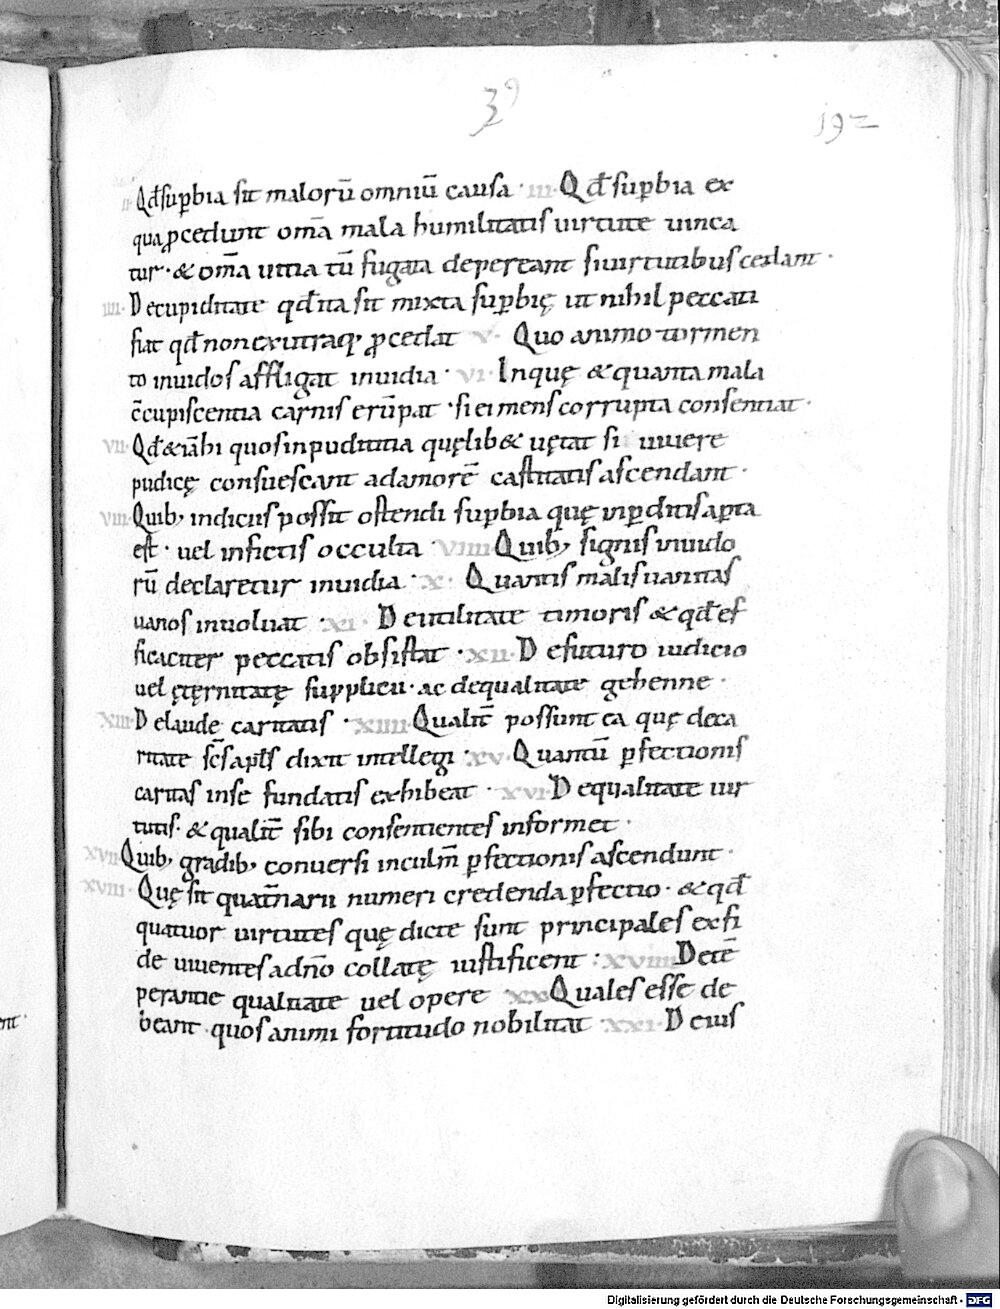 3⁹
192
ii· Qđ suꝑbia sit maloru̅ omniu̅ causa · iii· Qđ suꝑbia ex
qua ꝓcedunt om̅a mala humilitatis uirtute uinca
tur · & om̅a uitia tu̅ fugata depereant si uirtutibus cedant ·
iiii· De cupiditate qđ ita sit mixta suꝑbię ut nihil peccati
fiat qđ non ex utraq; ꝓcedat · v · Quo animo tormen
to inuidos affligat inuidia · vi · In quę & quanta mala
c̅cupiscentia carnis eru̅pat · si ei mens corrupta consentiat ·
vii· Qđ & ia̅ hi quos inpudititia quęlib& uętat si uiuere
pudicę consuescant ad amore̅ castitatis ascendant ·
viii· Quib; indiciis possit ostendi suꝑbia quę in ꝑditis aꝑta
est · uel in fictis occulta · viiii· Quib; signis inuido
ru̅ declaretur inuidia · x · Quantis malis uanitas
uanos inuoluat · xi · De utilitate timoris & qđ ef
ficaciter peccatis obsistat · xii· De futuro iudicio
uel ęternitatę supplicii · ac de qualitate gehenne ·
xiii· De laude caritatis · xiiii· Qualit̅ possunt ea quę de ca
ritate sc̅s apl̅s dixit intellegi · xv · Quantu̅ ꝑfectionis
caritas in se fundatis exhibeat · xvi· De qualitate uir
tutis · & qualit̅ sibi consentientes informet ·
xvii· Quib; gradib; conuersi in culm̅ ꝑfectionis ascendunt ·
xviii· Quę sit quat̅narii numeri credenda ꝑfectio · & qđ
quatuor uirtutes quę dicte sunt principales ex fi
de uiuentes a dn̅o collatę iustificent : xviiii De te̅
perantie qualitate uel opere xx Quales esse de
beant quos animi fortitudo nobilitat xxi· De ius
Digitalisierung gefördert durch die Deutsche Forschungsgemeinschaft - DFG